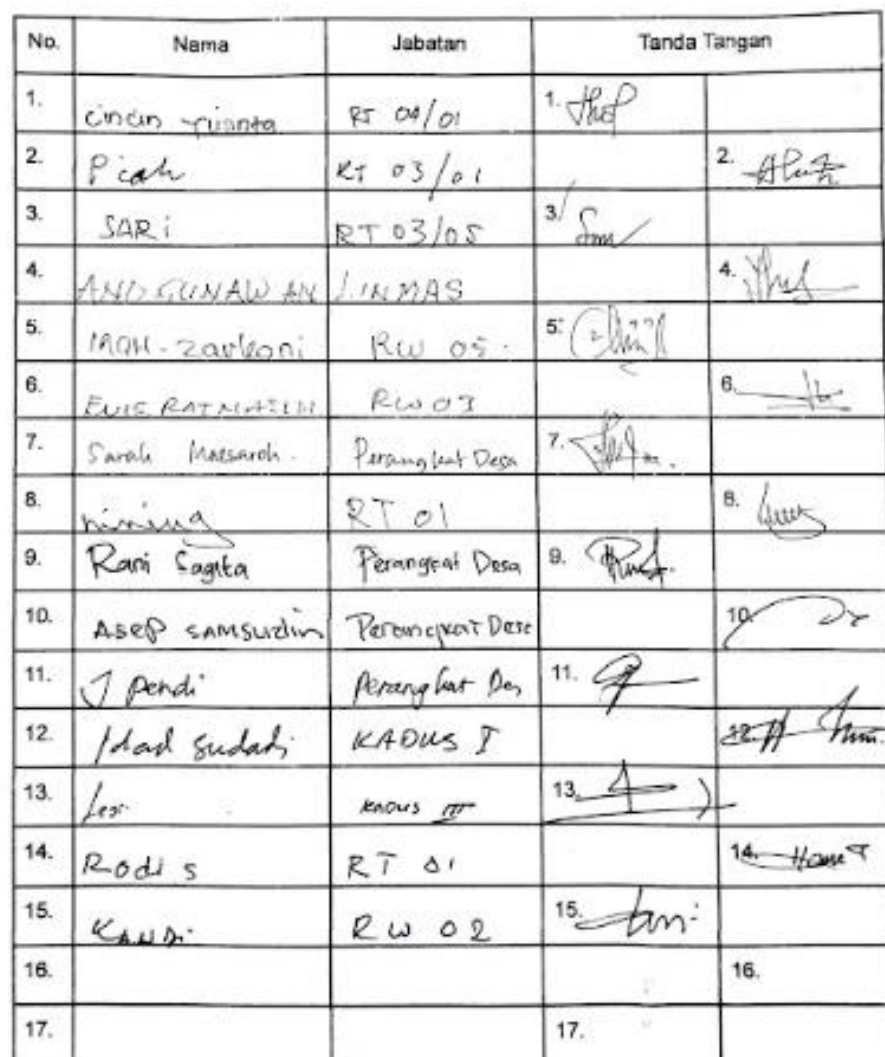 No. Nama Jabatan Tanda Tangan
1. cincin yuanta RT 04/01 1.
2. Picah RT 03/01 2.
3. SARi RT 03/05 3.
4. ANDI GUNAWAN LINMAS 4.
5. MOH. Zarkoni RW 05. 5.
6. EUIS RW 03 6.
7. Sarah Maesaroh. Perangkat Desa 7.
8. nining RT 01 8.
9. Rani Sagita Perangkat Desa 9.
10. ASEP SAMSUdin Perangkat Desa 10.
11. J Pendi Perangkat Des 11.
12. Idad Sudadi KADUS I 12.
13. KADUS III 13.
14. Rodi s RT 01 14.
15. KANDi RW 02 15.
16. 16.
17. 17.